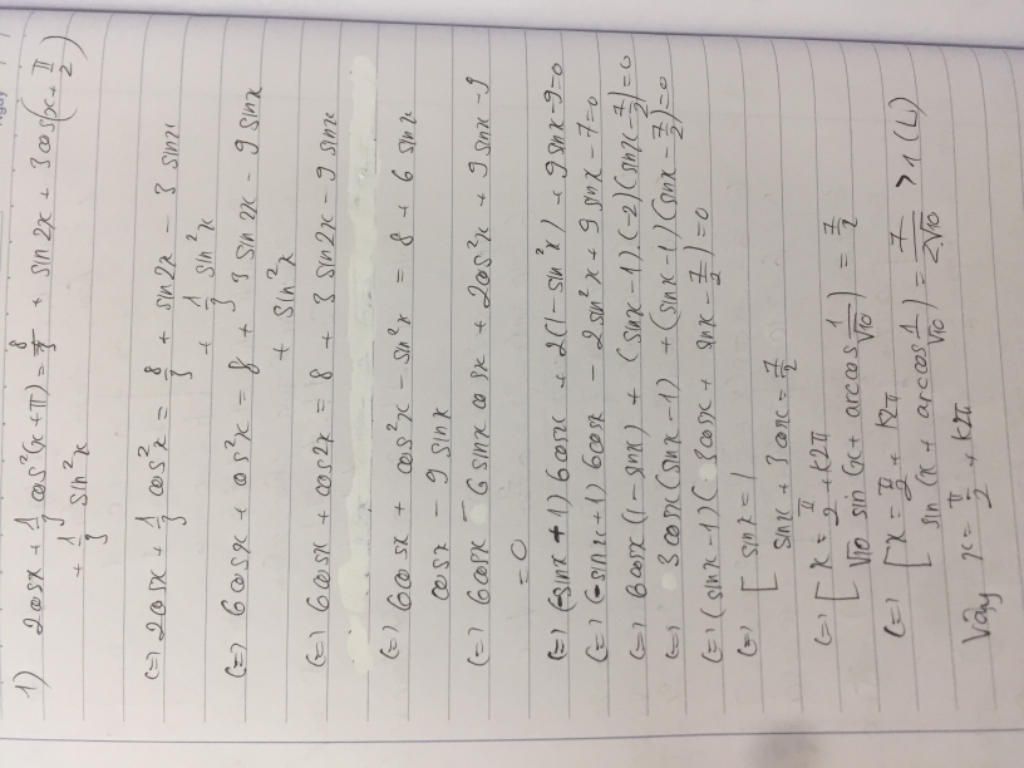 1) 2cosx + 1/3 cos²(x+π) = 8/3 + sin2x + 3cos(x+π/2)
+ 1/3 sin²x
(=) 2cosx + 1/3 cos²x = 8/3 + sin2x - 3 sinx
+ 1/3 sin²x
(=) 6cosx + cos²x = 8 + 3 sin2x - 9 sinx
+ sin²x
(=) 6cosx + cos2x = 8 + 3 sin2x - 9 sinx
(=) 6cosx + cos²x - sin²x = 8 + 6 sinx
cosx - 9 sinx
(=) 6cosx - 6 sinx cosx + 2cos²x + 9 sinx - 9
= 0
(=) (-sinx + 1) 6cosx + 2(1 - sin²x) + 9 sinx - 9 = 0
(=) (-sinx + 1) 6cosx - 2sin²x + 9 sinx - 7 = 0
(=) 6cosx (1 - sinx) + (sinx - 1).(-2)(sinx - 7/2) = 0
(=) 3cosx (sinx - 1) + (sinx - 1)(sinx - 7/2) = 0
(=) (sinx - 1)(3cosx + sinx - 7/2) = 0
(=) [ sinx = 1
sinx + 3cosx = 7/2
(=) [ x = π/2 + k2π
√10 sin(x + arccos 1/√10) = 7/2
(=) [ x = π/2 + k2π
sin(x + arccos 1/√10) = 7/2√10 > 1 (L)
Vậy x = π/2 + k2π